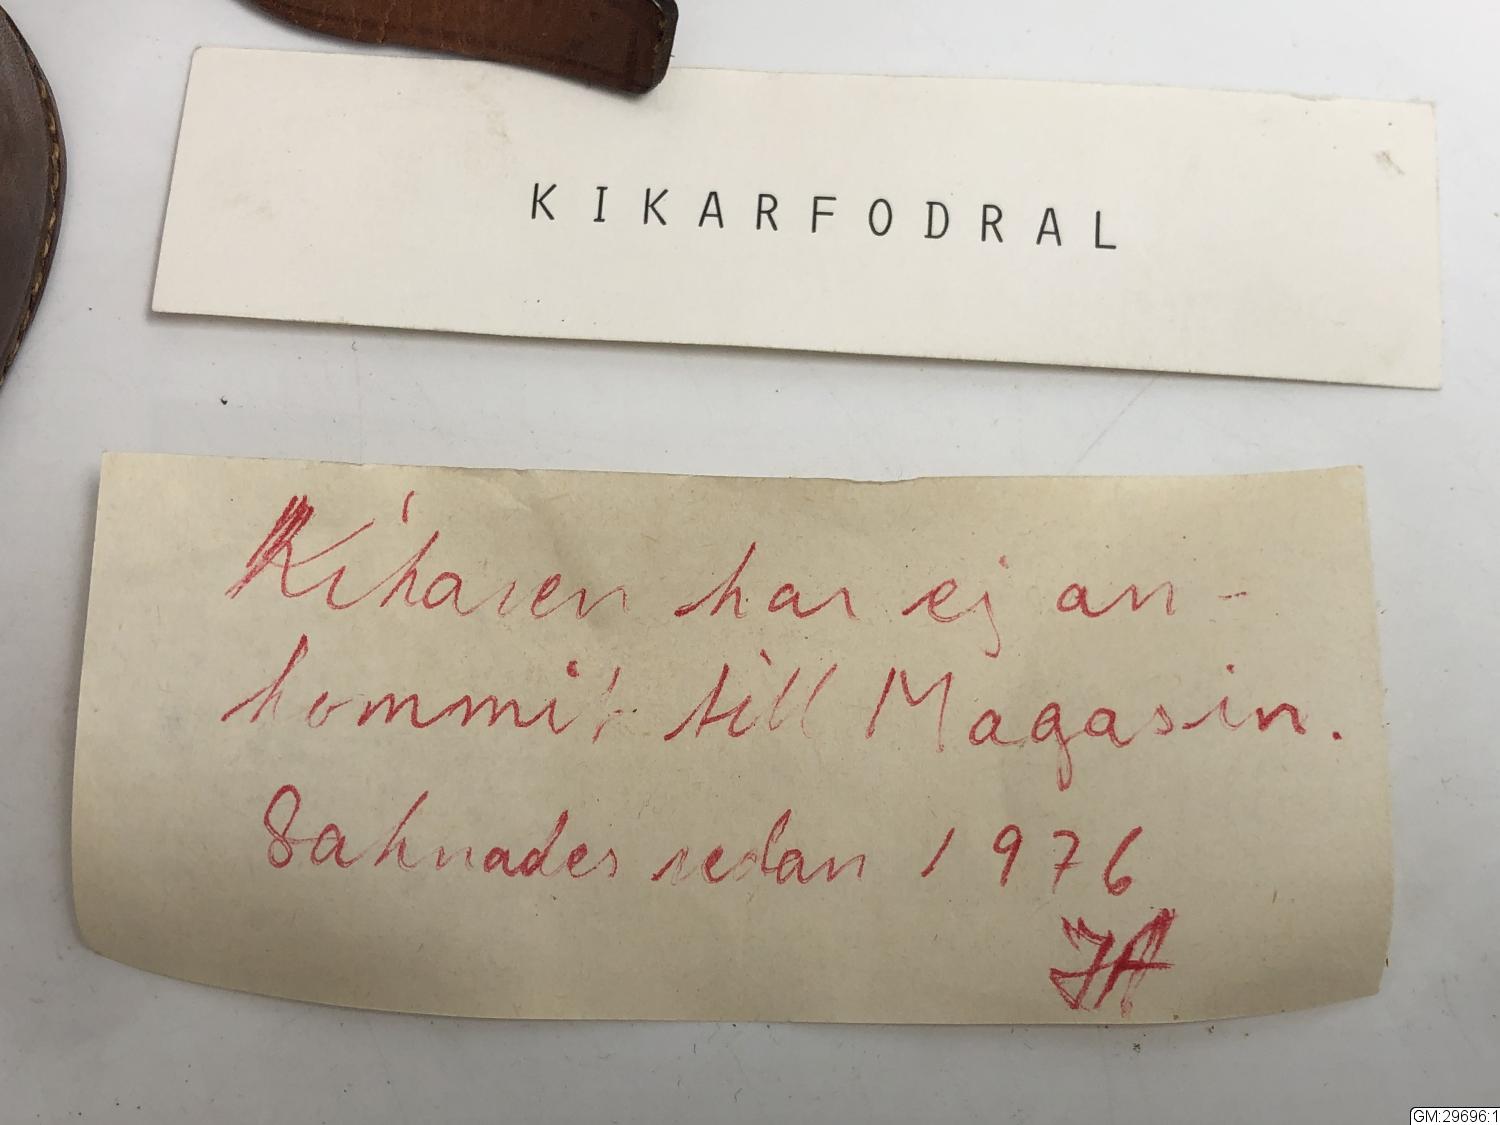 KIKARFODRAL
Kikaren har ej an-
kommit till Magasin.
Saknades redan 1976
JA
GM:29696:1